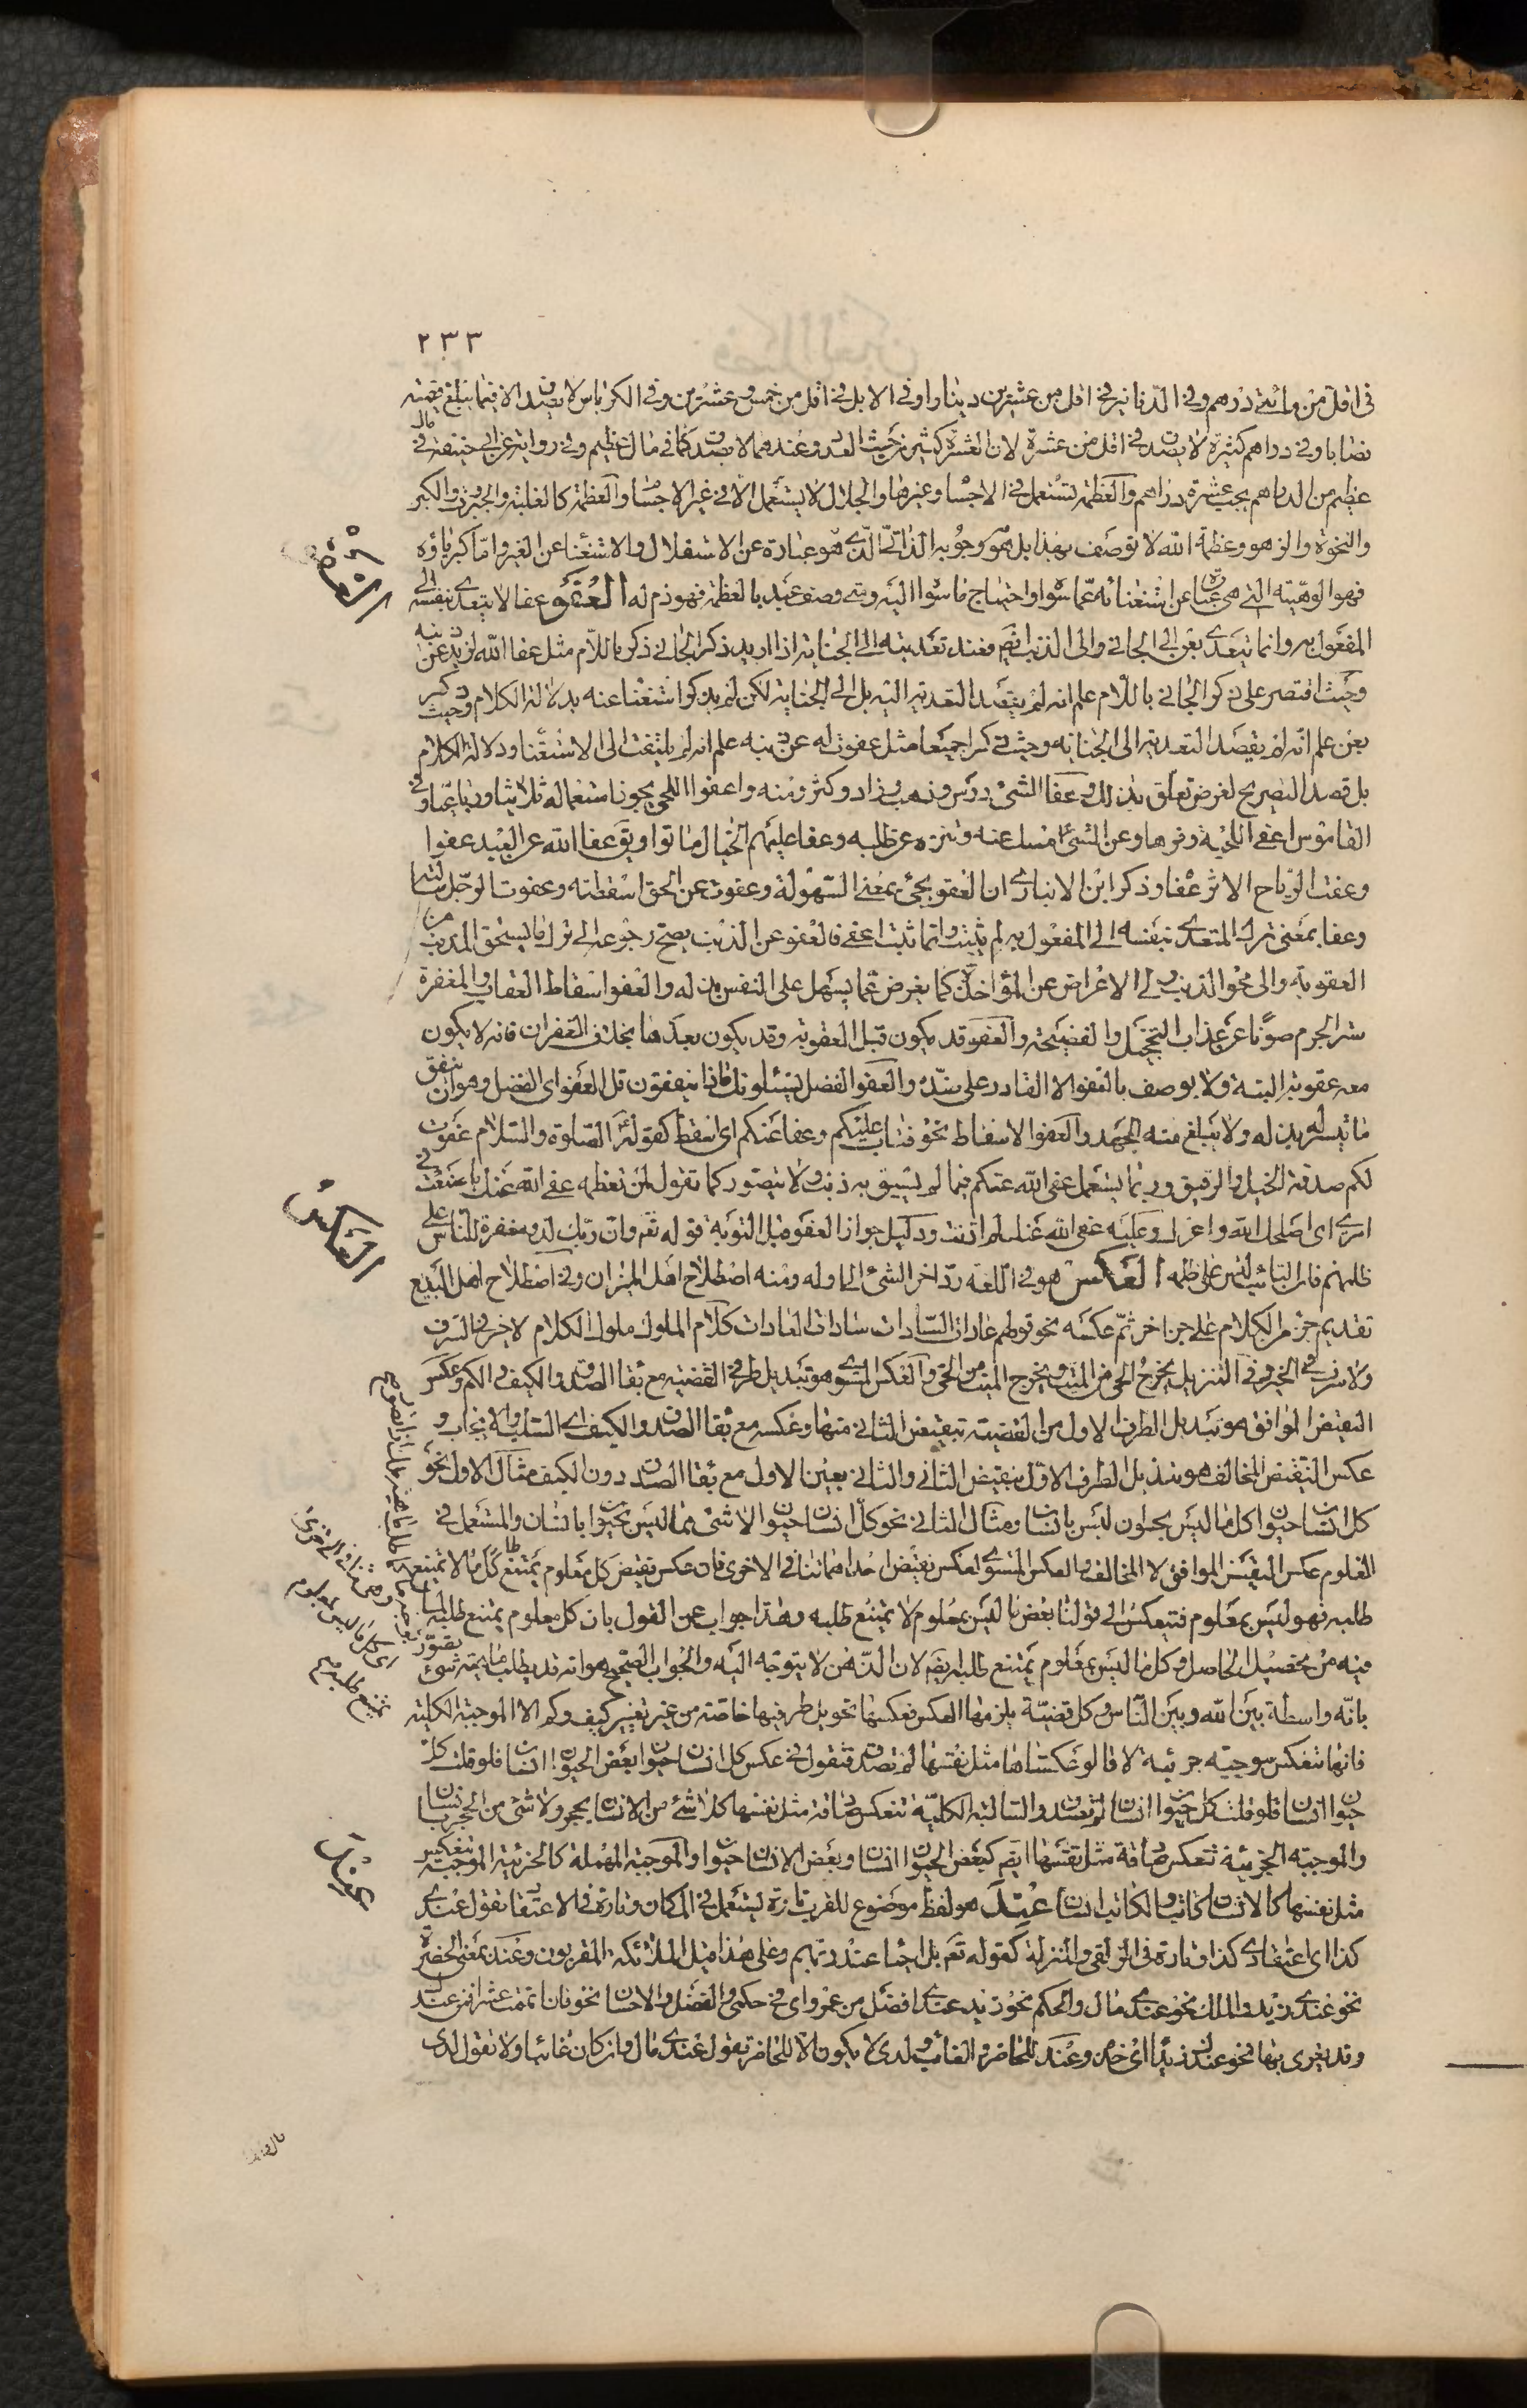 ٢٣٣
فى اقل من مائتى درهم وفى الدنانير فى اقل من عشرين دينارا وفى الابل فى اقل من خمس وعشرين وفى الكرباس لا يصدق الا فيما يبلغ قيمته
نصابا وفى دراهم كثيرة لا يصدق فى اقل من عشرة لان العشرة كثير من حيث العدد وعندهما لا يصدق كما فى مال عظيم وفى رواية عن ابى حنيفة فى مال
عظيم من الدراهم يجب عشرة دراهم والعظمة تستعمل فى الاجسام وغيرها والجلال لا يستعمل الا فى غير الاجسام والعظمة كالغلبة والجبروت والكبر
والنخوة والزهو وعظمة الله لا توصف بهذا بل هو وجوبه الذاتى الذى هو عبارة عن الاستقلال والاستغناء عن الغير واما كبرياؤه
فهو الوهيته التى هى عبارة عن استغنائه عما سواه واحتياج ما سواه اليه ومتى وصف عبد بالعظمة فهو ذم له العفو عفا لا يتعدى بنفسه الى
المفعول به وانما يتعدى بعن الى الجانى والى الذنب ايضا فعند تعديته الى الجناية اذا اريد ذكر الجانى ذكر باللام مثل عفا الله لزيد عن ذنبه
وحيث اقتصر على ذكر الجانى باللام علم انه لم يقصد التعدية اليه بل الى الجناية لكن لم يذكر استغناء عنه بدلالة الكلام وحيث ذكر
بعن علم انه لم يقصد التعدية الى الجناية وحيث ذكرا جميعا مثل عفوت له عن ذنبه علم انه لم يلتفت الى الاستغناء ودلالة الكلام
بل قصد التصريح لغرض تعلق بذلك وعفا الشئ درس وذهب وزاد وكثر ومنه واعفوا اللحى يجوز استعماله ثلاثيا ورباعيا وفى
القاموس اعفى اللحية وفرها وعن الشئ امسك عنه وتنزه عن طلبه وعفا عليهم الخيال ماتوا ويق عفا الله عن العبد عفوا
وعفت الرياح الاثر عفا وذكر ابن الانبارى ان العفو يجئ بمعنى السهولة وعفوت عن الحق اسقطته وعفوت الرجل سالته
وعفا بمعنى ترك المتعدى بنفسه الى المفعول به لم يثبت وانما ثبت اعفى فالعفو عن الذنب يصح رجوعه الى ترك ما يستحق المذنب من
العقوبة والى محو الذنب والى الاعراض عن المؤاخذة كما يعرض عما يسهل على النفس بذله والعفو اسقاط العقاب والمغفرة
ستر الجرم صونا عن عذاب التخجيل والفضيحة والعفو قد يكون قبل العقوبة وقد يكون بعدها بخلاف الغفران فانه لا يكون
معه عقوبة البتة ولا يوصف بالعفو الا القادر على ضده والعفو الفضل يسئلونك ماذا ينفقون قل العفو اى الفضل وهو ان ينفق
ما تيسر له بذله ولا يبلغ منه الجهد والعفو الاسقاط نحو فتاب عليكم وعفا عنكم اى اسقط كقوله عليه الصلوة والسلام عفوت
لكم صدقة الخيل والرقيق وربما يستعمل عفى الله عنكم فيما لم يسبق به ذنب ولا يتصور كما تقول لمن تعظمه عفى الله عنك ما صنعت فى
امرى اى اصلحك الله واعزك وعليه عفى الله عنك لم اذنت ودليل جواز العفو قبل التوبة قوله تع وان ربك لذو مغفرة للناس على
ظلمهم فان التائب ليس على ظلمه العكس هو فى اللغة رد اخر الشئ الى اوله ومنه اصطلاح اهل الميزان وفى اصطلاح اهل البديع
تقديم جزء من الكلام على جزء اخر ثم عكسه نحو قولهم عادات السادات سادات العادات كلام الملوك ملوك الكلام لا خير فى السرف
ولا سرف فى الخير وفى التنزيل يخرج الحى من الميت ويخرج الميت من الحى والعكس المستوى هو تبديل طرفى القضية مع بقاء الصدق والكيف والكم وعكس
النقيض الموافق هو تبديل الطرف الاول من القضية بنقيض الثانى منها وعكسه مع بقاء الصدق والكيف اى السلب والايجاب و
عكس النقيض المخالف هو تبديل الطرف الاول بنقيض الثانى والثانى بعين الاول مع بقاء الصدق دون الكيف مثال الاول نحو
كل انسان حيوان كل ما ليس بحيوان ليس بانسان ومثال الثانى نحو كل انسان حيوان لا شئ مما ليس بحيوان بانسان والمستعمل فى
العلوم عكس النقيض الموافق لا المخالف والعكس المستوى لعكس نقيض احداهما تنافى الاخرى فان عكس نقيض كل معلوم يمتنع طلبه كل ما لا يمتنع
طلبه فهو ليس بمعلوم فتنعكس الى قولنا بعض ما ليس بمعلوم لا يمتنع طلبه وهذا جواب عن القول بان كل معلوم يمتنع طلبه لما
فيه من تحصيل الحاصل وكل ما ليس بمعلوم يمتنع طلبه ايضا لان الذهن لا يتوجه اليه والجواب الصحيح هو انه قد يطلب ماهية شئ
بانه واسطة بين الله وبين الناس وكل قضية يلزمها العكس فعكسها تحويل طرفيها خاصة من غير تغيير كيف وكم الا الموجبة الكلية
فانها تنعكس موجبة جزئية لانا لو عكسناها مثل نفسها لم تصدق فتقول فى عكس كل انسان حيوان بعض الحيوان انسان فلو قلت كل
حيوان انسان فلو قلت كل حيوان انسان لم تصدق والسالبة الكلية تنعكس صادقة مثل نفسها كلا شئ من الانسان بحجر ولا شئ من الحجر بانسان
والموجبة الجزئية تنعكس صادقة مثل نفسها ايضا كبعض الحيوان انسان وبعض الانسان حيوان والموجبة المهملة كالجزئية الموجبة تنعكس
مثل نفسها كالانسان كاتب والكاتب انسان عند هو لفظ موضوع للقرب تارة يستعمل فى المكان وتارة فى الاعتقاد تقول عندى
كذا اى اعتقادى كذا وتارة فى الزلفى والمنزلة كقوله تع بل احياء عند ربهم وعلى هذا قيل الملائكة المقربون وعند بمعنى الحضرة
نحو عندى زيد والملك نحو عندى مال والحكم نحو زيد عندى افضل من عمرو اى فى حكمى والفضل والاحسان نحو فان اتممت عشرا فمن عندك
وقد يغرى بها نحو عندك زيدا اى خذه وعند للحاضر والغائب ولدى لا يكون الا للحاضر تقول عندى مال وان كان غائبا ولا تقول لدى
العفو
العكس
عند